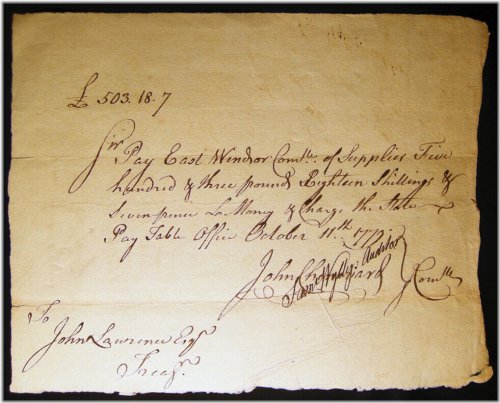 £ 503.18.7
Sir
Pay East Windsor Comtte. of Supplies Five
hundred & three pounds Eighteen Shillings &
Seven pence L Money & Charge the State
Pay Table Office October 11th. 177
John Chenevard
Auditor
Comtte
To
John Lawrence Esqr
Treasr.